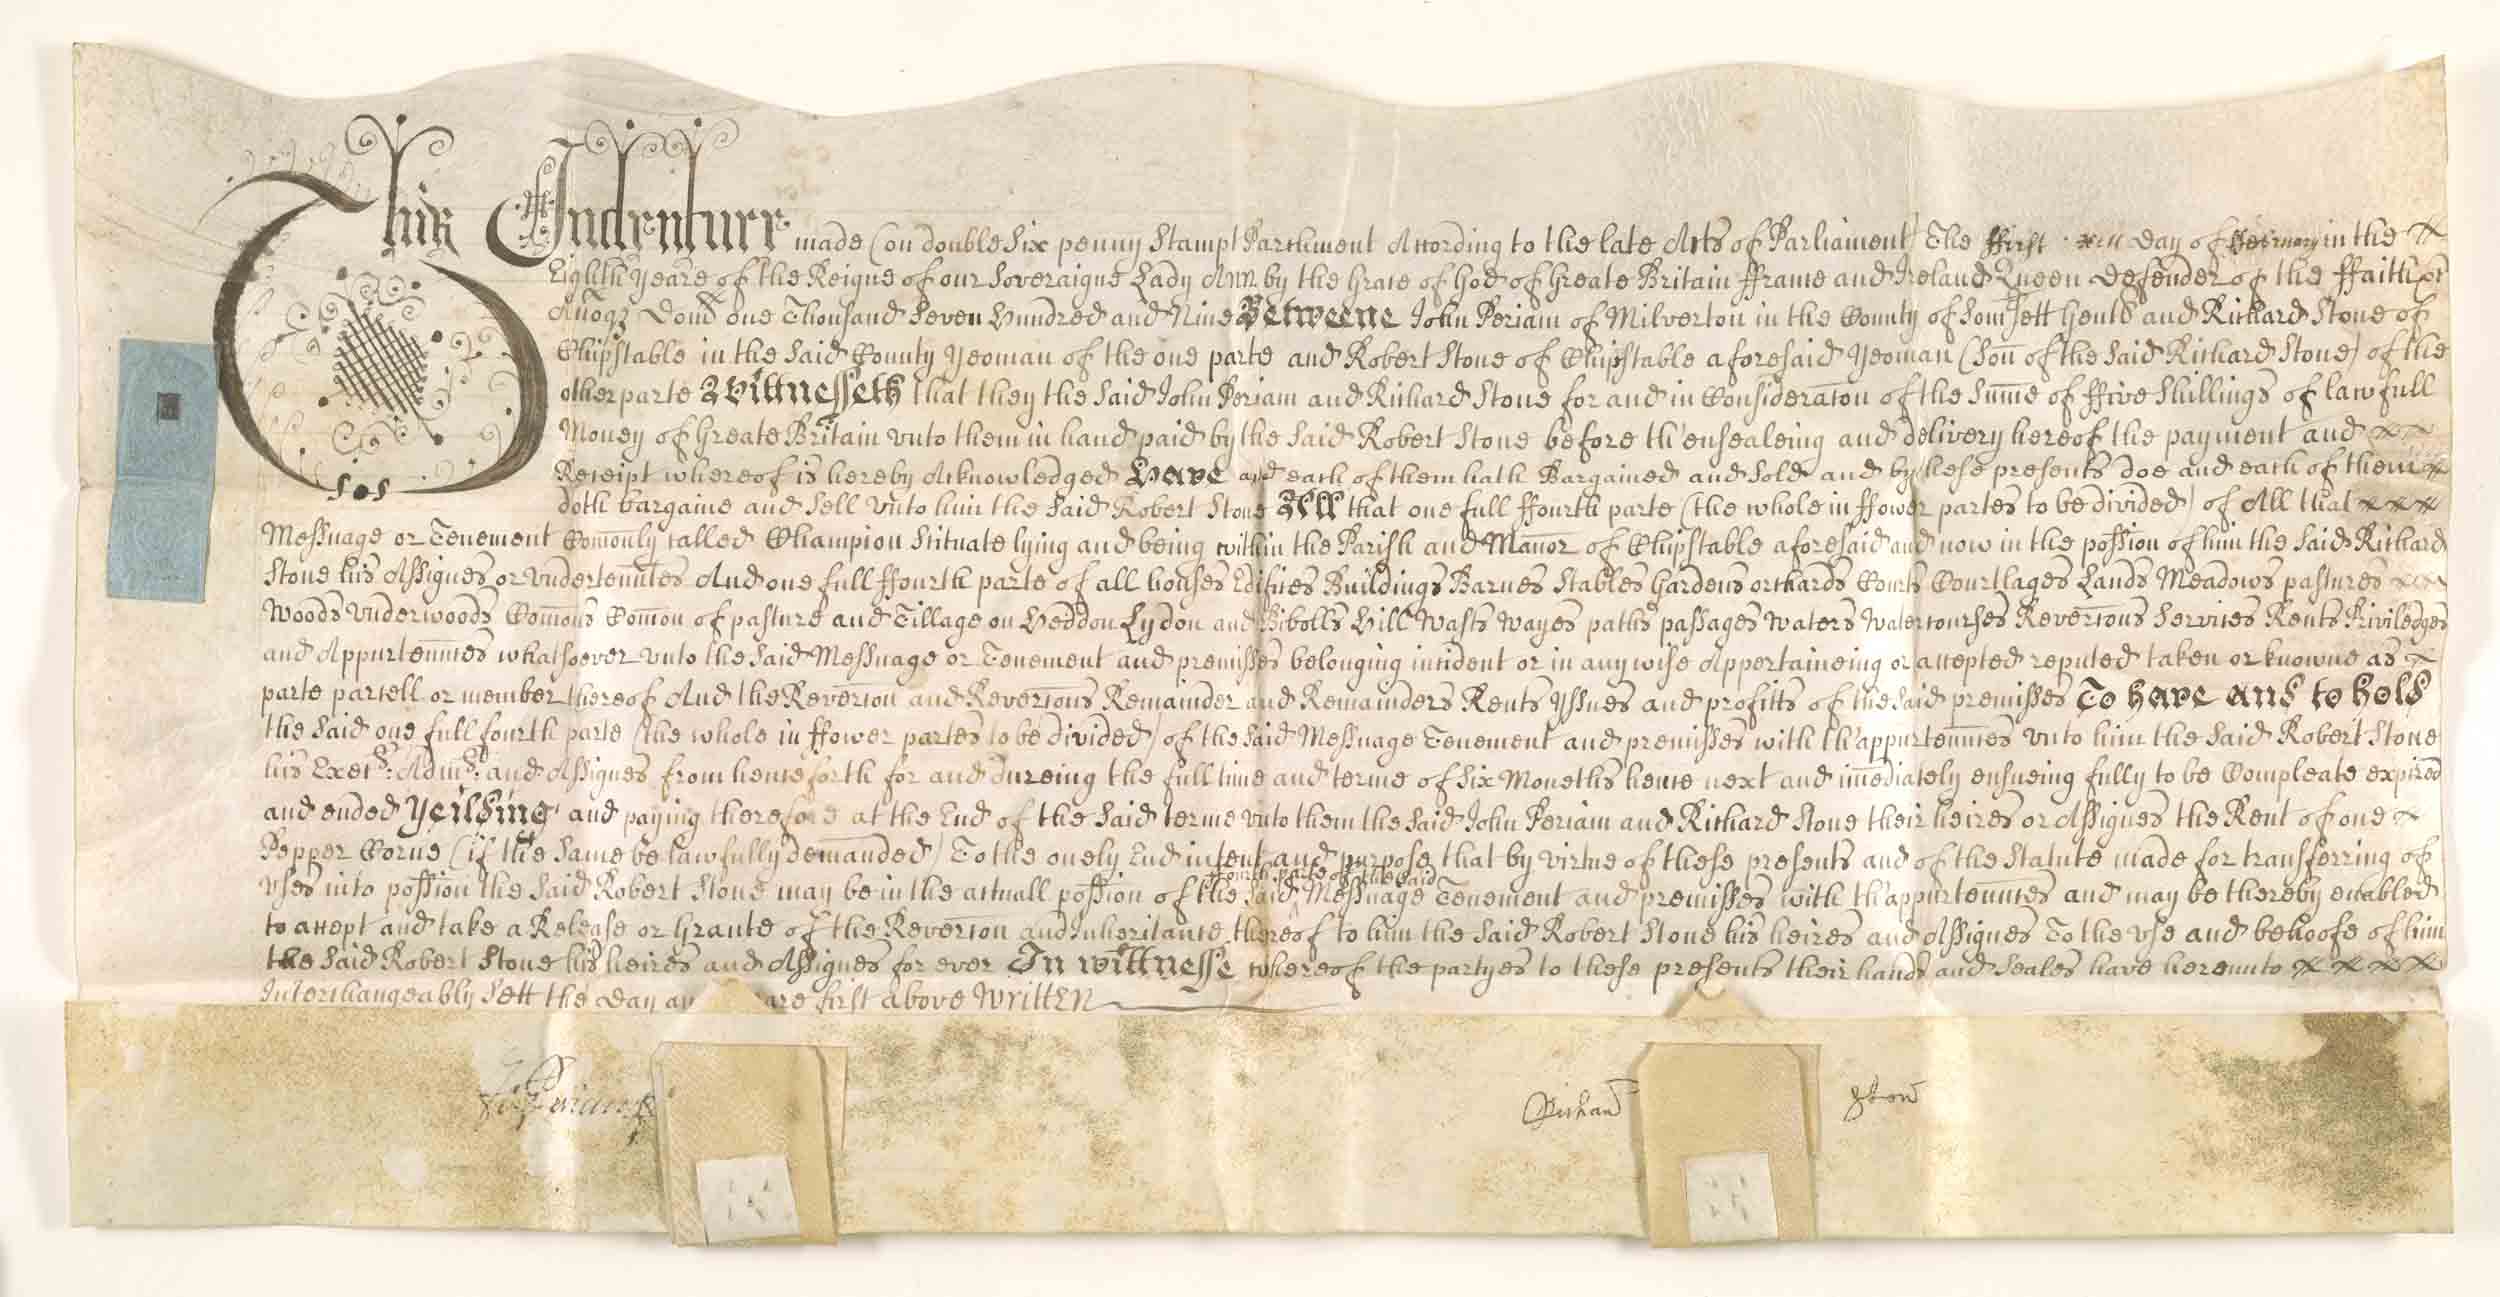 This Indenture made (on double Six penny Stampt Parchment According to the late Acts of Parliament) The ffirst day of ffebruary in the
Eighth Yeare of the Reigne of our Soveraigne Lady Ann by the Grace of God of Greate Britain ffrance and Ireland Queen Defender of the ffaith &c
Annoq; Dom̄ one Thousand Seven Hundred and Nine Betweene John Periam of Milverton in the County of Som̄sett Gent and Richard Stone of
Chipstable in the Said County Yeoman of the one parte and Robert Stone of Chipstable aforesaid Yeoman (Son̄ of the Said Richard Stone) of the
other parte Wittnesseth that they the Said John Periam and Richard Stone for and in Considerac̄on of the Sum̄e of ffive Shillings of lawfull
Money of Greate Britain vnto them in hand paid by the Said Robert Stone before th'ensealeing and delivery hereof the payment and
Receipt whereof is hereby Acknowledged Have and each of them hath Bargained and Sold and by these presents doe and each of them
doth bargaine and Sell vnto him the Said Robert Stone All that one full ffourth parte (the whole in ffower partes to be divided) of All that
Messuage or Tenement Com̄only called Champion Scituate lying and being within the Parish and Man̄or of Chipstable aforesaid and now in the possion of him the Said Richard
Stone his Assignes or vndertenn̄tes And one full ffourth parte of all houses Edifices Buildings Barnes Stables Gardens orchards Courts Courtlages Lands Meadows pastures
Woods Vnderwoods Com̄ons Com̄on of pasture and Tillage on Heddon Lydon and Bibolls Hill Wasts Wayes paths passages Waters Watercourses Reverc̄ons Services Rents Priviledges
and Appurten̄nces whatsoever vnto the Said Messuage or Tenement and premisses belonging incident or in anywise Appertaineing or accepted reputed taken or knowne as
parte parcell or member thereof And the Reverc̄on and Reverc̄ons Remainder and Remainders Rents Yssues and profitts of the Said premisses To have and to hold
the Said one full fourth parte (the whole in ffower partes to be divided) of the Said Messuage Tenement and premisses with th'appurten̄nces vnto him the Said Robert Stone
his Exec:rs Adm:rs and Assignes from henceforth for and dureing the full time and terme of Six Moneths hence next and im̄ediately ensueing fully to be Compleate expired
and ended Yeilding and paying therefore at the End of the Said terme vnto them the Said John Periam and Richard Stone their heires or Assignes the Rent of one
Pepper Corne (if the Same be lawfully demanded) To the onely End intent and purpose that by virtue of these presents and of the Statute made for transferring of
ffourth parte of the said
Vses into possion the Said Robert Stone may be in the actuall possion of the Said Messuage Tenement and premisses with th'appurten̄nces and may be thereby enabled
to accept and take a Release or Grante of the Reverc̄on and Inheritance thereof to him the Said Robert Stone his heires and Assignes To the vse and behoofe of him
the Said Robert Stone his heires and Assignes for ever In wittnesse whereof the partyes to these presents their hands and Seales have hereunto
Interchangeably Sett the day first above Written
Richard Stone